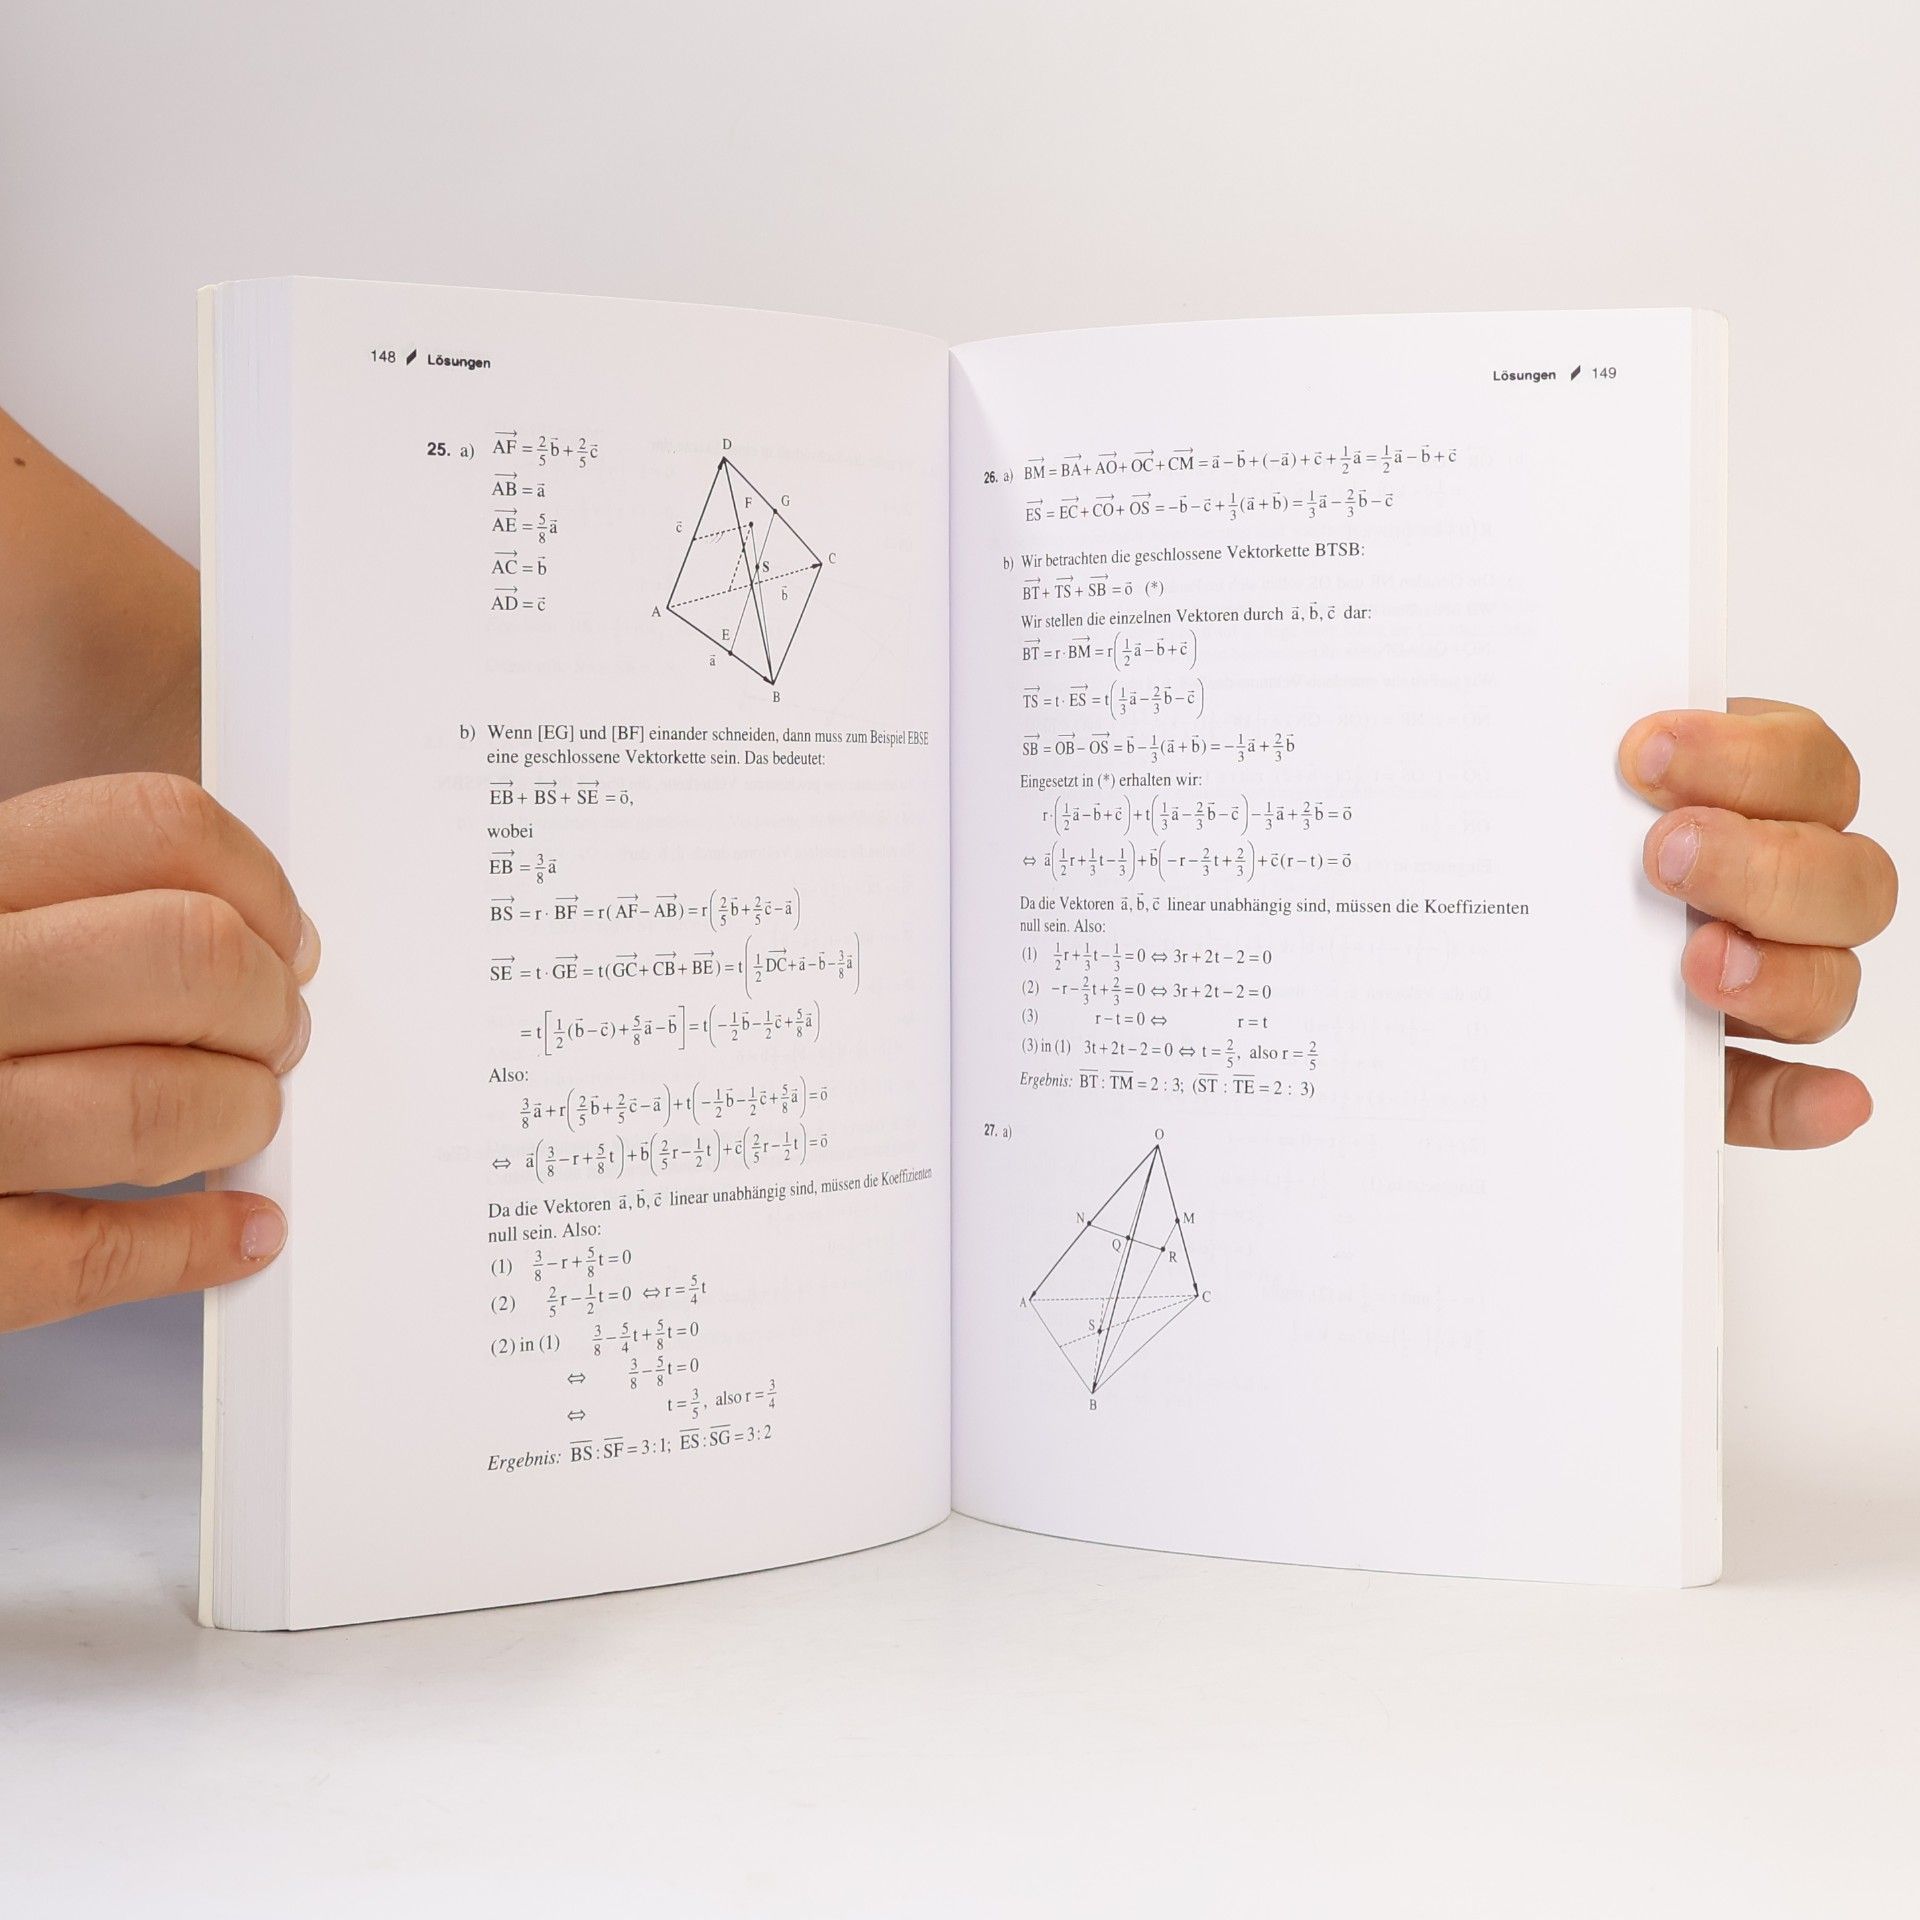 148 Lösungen
25. a) AF⃗ = 2/5 b⃗ + 2/5 c⃗
AB⃗ = a⃗
AE⃗ = 5/8 a⃗
AC⃗ = b⃗
AD⃗ = c⃗
D
F G
c⃗
C
S
b⃗
A
E
a⃗
B
b) Wenn [EG] und [BF] einander schneiden, dann muss zum Beispiel EBSE
eine geschlossene Vektorkette sein. Das bedeutet:
EB⃗ + BS⃗ + SE⃗ = o⃗,
wobei
EB⃗ = 3/8 a⃗
BS⃗ = r · BF⃗ = r(AF⃗ − AB⃗) = r(2/5 b⃗ + 2/5 c⃗ − a⃗)
SE⃗ = t · GE⃗ = t(GC⃗ + CB⃗ + BE⃗) = t(1/2 DC⃗ + a⃗ − b⃗ − 3/8 a⃗)
= t[1/2 (b⃗ − c⃗) + 5/8 a⃗ − b⃗] = t(−1/2 b⃗ − 1/2 c⃗ + 5/8 a⃗)
Also:
3/8 a⃗ + r(2/5 b⃗ + 2/5 c⃗ − a⃗) + t(−1/2 b⃗ − 1/2 c⃗ + 5/8 a⃗) = o⃗
⇔ a⃗(3/8 − r + 5/8 t) + b⃗(2/5 r − 1/2 t) + c⃗(2/5 r − 1/2 t) = o⃗
Da die Vektoren a⃗, b⃗, c⃗ linear unabhängig sind, müssen die Koeffizienten
null sein. Also:
(1) 3/8 − r + 5/8 t = 0
(2) 2/5 r − 1/2 t = 0 ⇔ r = 5/4 t
(2) in (1) 3/8 − 5/4 t + 5/8 t = 0
⇔ 3/8 − 5/8 t = 0
⇔ t = 3/5, also r = 3/4
Ergebnis: B̅S̅ : S̅F̅ = 3 : 1; E̅S̅ : S̅G̅ = 3 : 2
Lösungen 149
26. a) BM⃗ = BA⃗ + AO⃗ + OC⃗ + CM⃗ = a⃗ − b⃗ + (−a⃗) + c⃗ + 1/2 a⃗ = 1/2 a⃗ − b⃗ + c⃗
ES⃗ = EC⃗ + CO⃗ + OS⃗ = −b⃗ − c⃗ + 1/3 (a⃗ + b⃗) = 1/3 a⃗ − 2/3 b⃗ − c⃗
b) Wir betrachten die geschlossene Vektorkette BTSB:
BT⃗ + TS⃗ + SB⃗ = o⃗ (*)
Wir stellen die einzelnen Vektoren durch a⃗, b⃗, c⃗ dar:
BT⃗ = r · BM⃗ = r(1/2 a⃗ − b⃗ + c⃗)
TS⃗ = t · ES⃗ = t(1/3 a⃗ − 2/3 b⃗ − c⃗)
SB⃗ = OB⃗ − OS⃗ = b⃗ − 1/3 (a⃗ + b⃗) = −1/3 a⃗ + 2/3 b⃗
Eingesetzt in (*) erhalten wir:
r · (1/2 a⃗ − b⃗ + c⃗) + t(1/3 a⃗ − 2/3 b⃗ − c⃗) − 1/3 a⃗ + 2/3 b⃗ = o⃗
⇔ a⃗(1/2 r + 1/3 t − 1/3) + b⃗(−r − 2/3 t + 2/3) + c⃗(r − t) = o⃗
Da die Vektoren a⃗, b⃗, c⃗ linear unabhängig sind, müssen die Koeffizienten
null sein. Also:
(1) 1/2 r + 1/3 t − 1/3 = 0 ⇔ 3r + 2t − 2 = 0
(2) −r − 2/3 t + 2/3 = 0 ⇔ 3r + 2t − 2 = 0
(3) r − t = 0 ⇔ r = t
(3) in (1) 3t + 2t − 2 = 0 ⇔ t = 2/5, also r = 2/5
Ergebnis: B̅T̅ : T̅M̅ = 2 : 3; (S̅T̅ : T̅E̅ = 2 : 3)
27. a)
O
N M
Q
R
A C
S
B